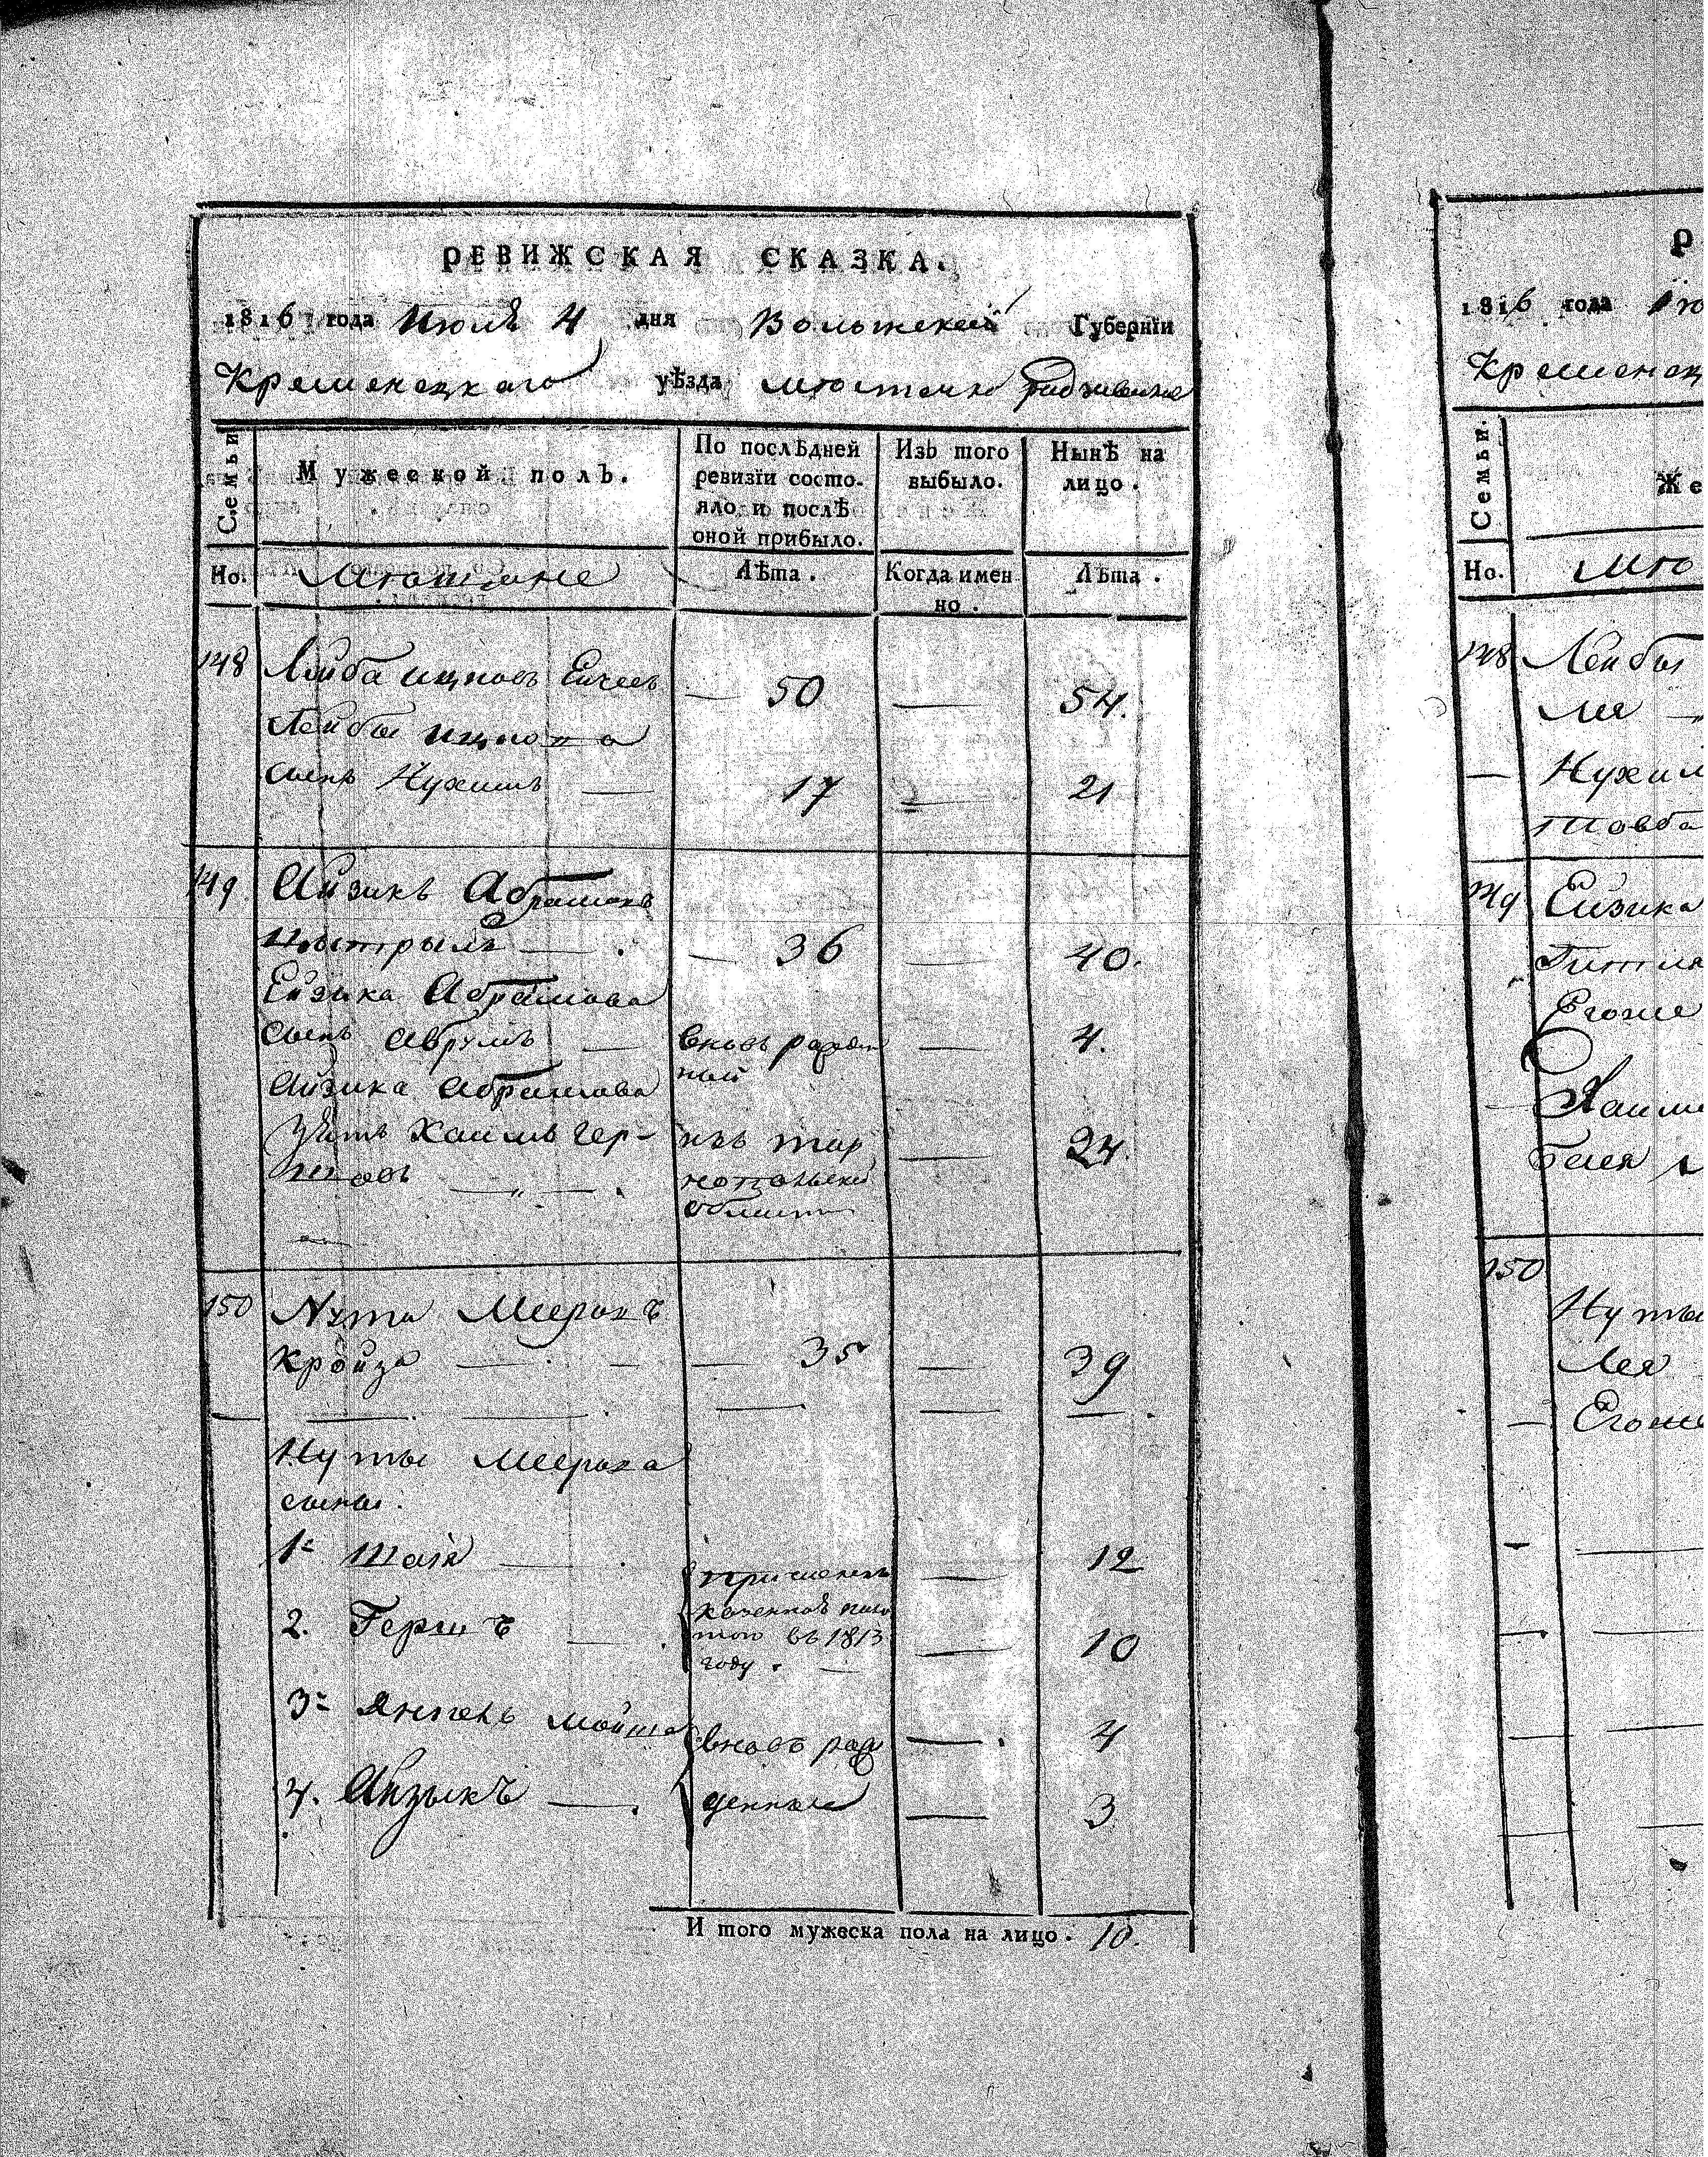 РЕВИЖСКАЯ СКАЗКА.
1816 года Июля 4 дня Волынской Губернїи
Кременецкаго уѣзда мѣстечка Радзивилова
Семьи
Мужеской полъ.
По послѣдней ревизїи состо-
яло и послѣ
оной прибыло.
Изъ того выбыло.
Нынѣ на лицо.
Но.
Лѣта.
Когда имен
но.
Лѣта.
148 Лейба Ицковъ 50 — 54.
Лейбы Ицкова
сынъ Нухимъ — 17 — 21
149 Айзикъ Абрамовъ
— 36 — 40.
Ейзика Абрамова
сынъ Аврумъ — вновь рожден
ный — 4.
Айзика Абрамова
зять Хаимъ Гер-
шковъ — изъ Тар
нопольской
области — 24.
150 Нута Мееровъ
Кройза — 35 — 39
Нуты Меерова
сыны.
1. Шаія — 12
2. Гершъ — 10
казенной пала
тою въ 1813
году.
3. Янкель Мойша вновь рож — 4
4. Айзыкъ — денные — 3
И того мужеска пола на лицо. 10.
Р
1816 года Ию
Кременец
Семьи.
Же
Но.
148 Лейбы
Лея
— Нухим
Товба
149 Ейзика
Гитля
Егоже
Хаим
Бейля
150
Нуты
Лея
— Егоже